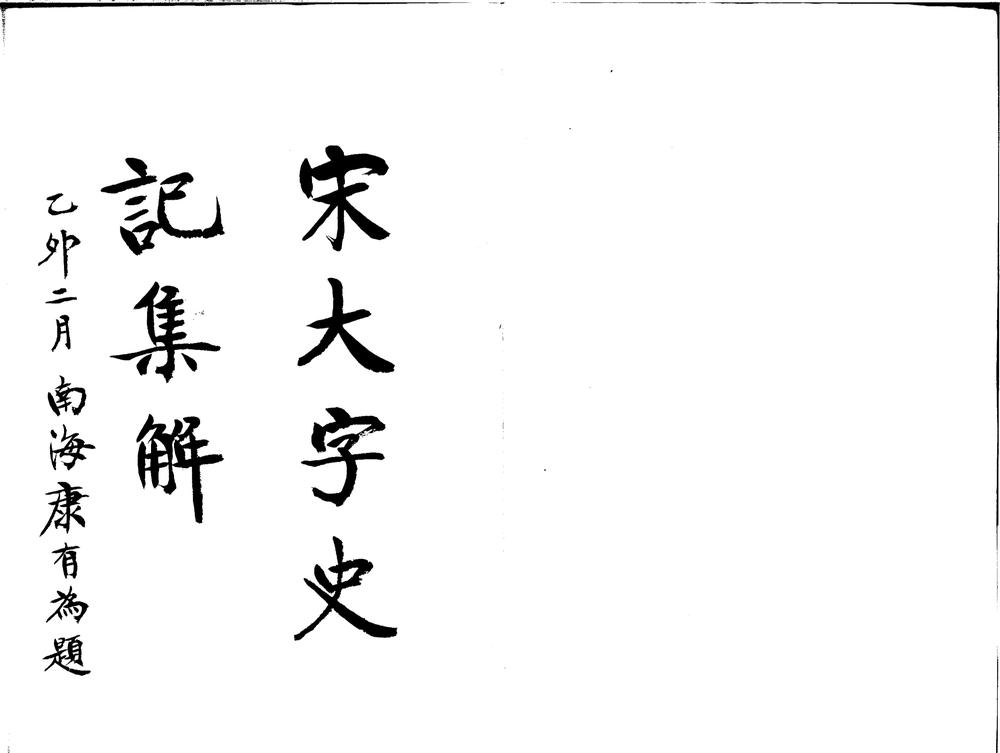 宋大字史
記集解
乙卯二月 南海康有為題